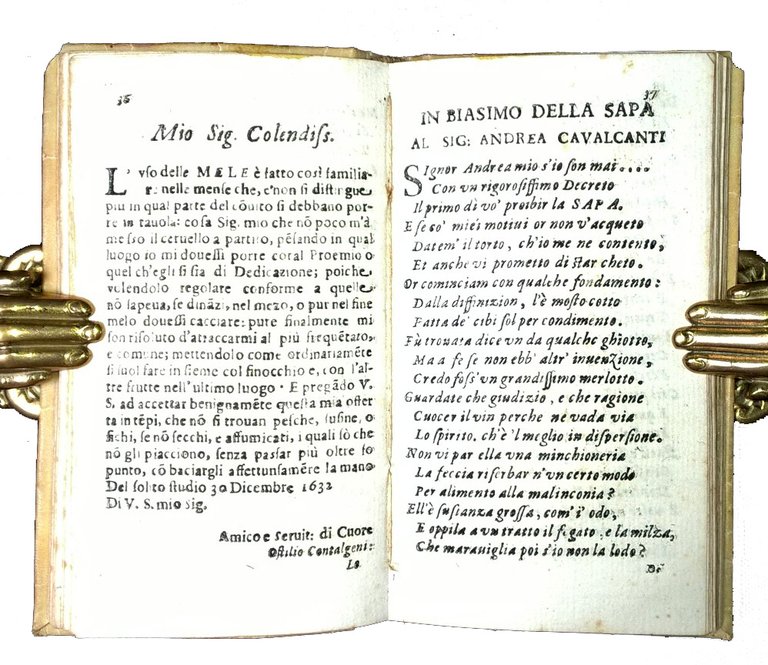 36
Mio Sig. Colendiſs.
L' vſo delle MELE è fatto così familia-
re nelle menſe che, e'non ſi diſtingue
più in qual parte del cõuito ſi debbano por-
re in tauola: coſa Sig. mio che nõ poco m'à
meſſo il ceruello a partito, pẽſando in qual
luogo io mi doueſſi porre cotal Proemio o
quel ch'egli ſi ſia di Dedicazione; poiche
volendolo regolare conforme a quelle
nõ ſapeua, ſe dinãzi, nel mezo, o pur nel fine
melo doueſſi cacciare: pure finalmente mi
ſon riſoluto d'attraccarmi al più frequẽtato,
e comune; mettendolo come ordinariamẽte
ſi ſuol fare inſieme col finocchio e, con l'al-
tre frutte nell'vltimo luogo. E pregãdo V.
S. ad accettar benignamẽte queſta mia offer
ta in tẽpi, che nõ ſi trouan peſche, ſuſine, o
fichi, ſe nõ ſecchi, e affumicati, i quali ſò che
nõ gli piacciono, ſenza paſſar più oltre fo
punto, cõ baciargli affettuoſamẽte la mano
Del ſolito ſtudio 30 Dicembre 1632
Di V. S. mio Sig.
Amico e Seruit: di Cuore
Oſtilio Contalgeni:
Lo
37
IN BIASIMO DELLA SAPA
AL SIG: ANDREA CAVALCANTI
SIgnor Andrea mio s'io ſon mai....
Con vn rigoroſiſſimo Decreto
Il primo di vo' proibir la SAPA.
E ſe co' miei motiui or non v'acqueto
Datem' il torto, ch'io me ne contento,
Et anche vi prometto di ſtar cheto.
Or cominciam con qualche fondamento:
Dalla diffinizion, l'è moſto cotto
Fatta de' cibi ſol per condimento.
Fù trouata dice vn da qualche ghiotto,
Ma a fe ſe non ebb' altr' inuenzione,
Credo foſs' vn grandiſſimo merlotto.
Guardate che giudizio, e che ragione
Cuocer il vin perche ne vada via
Lo ſpirito, ch'è 'l meglio in diſperſione.
Non vi par ella vna minchioneria
La feccia riſerbar n'vn certo modo
Per alimento alla malinconia?
Ell'è ſuſtanza groſſa, com'i' odo,
E oppila a vn tratto il fegato, e la milza,
Che marauiglia poi s'io non la lodo?
De